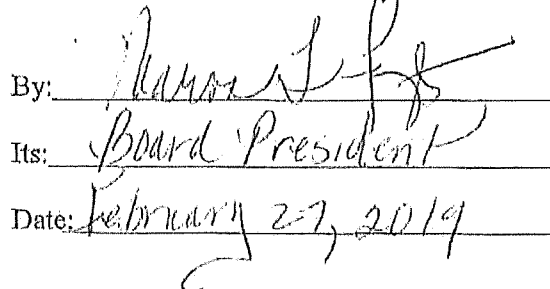 By:
Its: Board President
Date: February 27, 2019